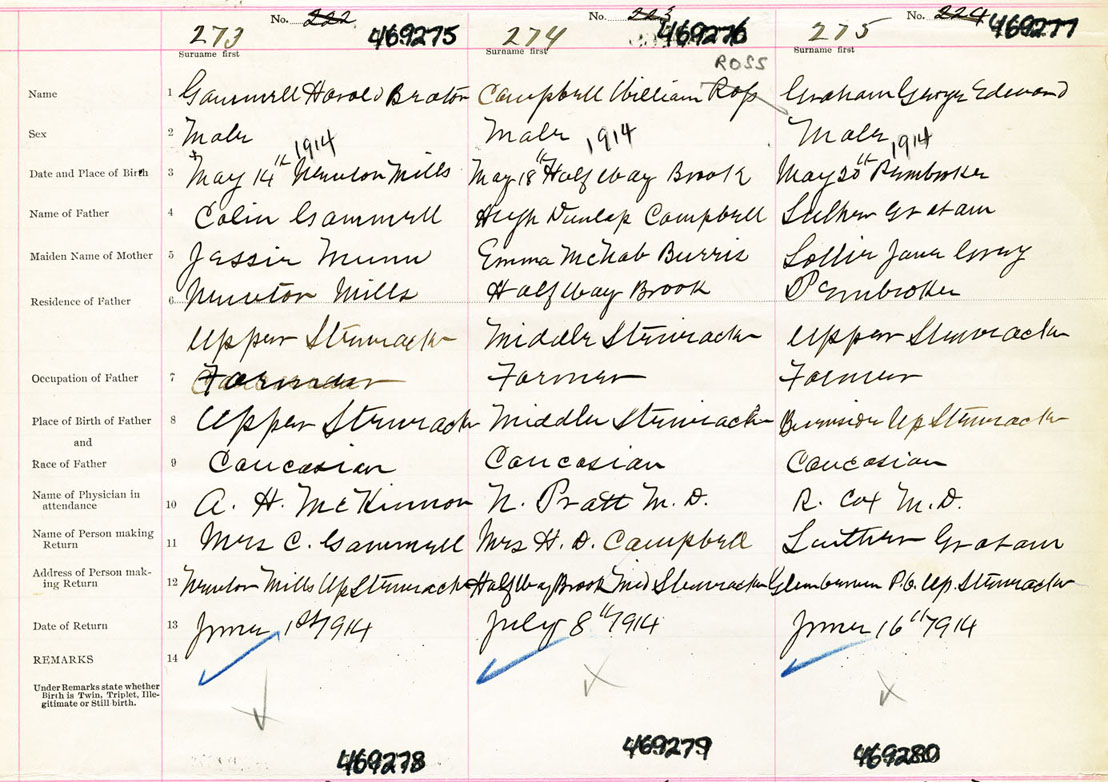 No. 222 No. 223 No. 224
273 469275 274 469276 275 469277
Surname first Surname first Surname first
ROSS
Name 1 Gammell Harold Campbell William Ross Graham George Edward
Sex 2 Male Male Male
1914 1914 1914
Date and Place of Birth 3 May 14th Newton Mills May 18th Half Way Brook May 20th Pembroke
Name of Father 4 Colin Gammell Hugh Dunlap Campbell Luther Graham
Maiden Name of Mother 5 Jessie Munn Emma McNab Burris Jane
Residence of Father 6 Newton Mills Half Way Brook Pembroke
Upper Stewiacke Middle Stewiacke Upper Stewiacke
Occupation of Father 7 Farmer Farmer
Place of Birth of Father 8 Upper Stewiacke Middle Stewiacke Burnside Up Stewiacke
and
Race of Father 9 Caucasian Caucasian Caucasian
Name of Physician in
attendance 10 A. H. McKinnon N. Pratt M. D. R. Cox M. D.
Name of Person making
Return 11 Mrs C. Gammell Mrs H. D. Campbell Luther Graham
Address of Person mak-
ing Return 12 Newton Mills Up Stewiacke Half Way Brook Mid Stewiacke Up. Stewiacke
Date of Return 13 June 1st 1914 July 8th 1914 June 16th 1914
REMARKS 14
Under Remarks state whether
Birth is Twin, Triplet, Ille-
gitimate or Still birth.
469278 469279 469280